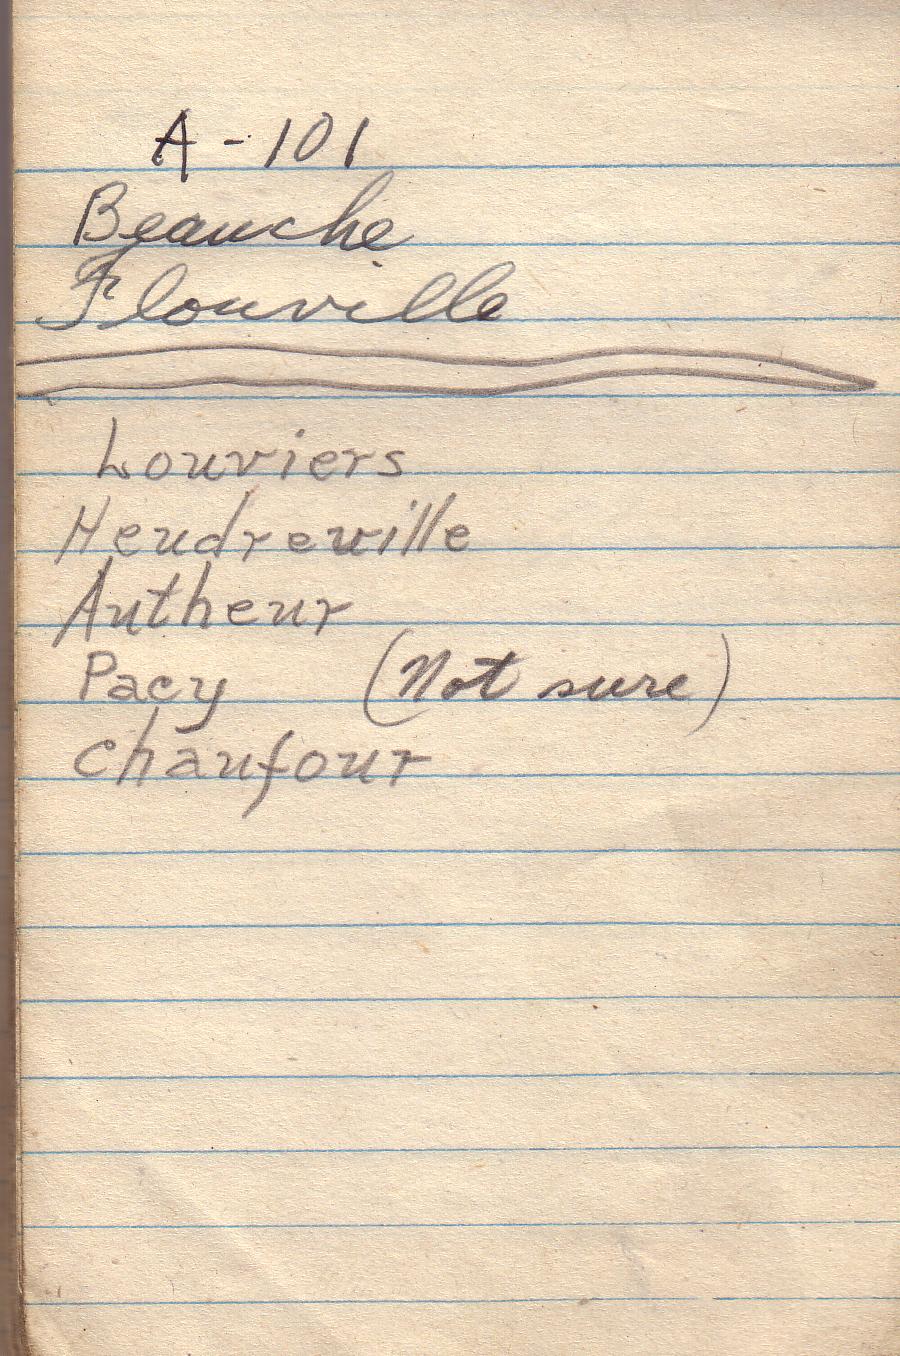 A - 101
Beauche
Flouville
Louviers
Heudreville
Autheur
Pacy (Not sure)
Chaufour